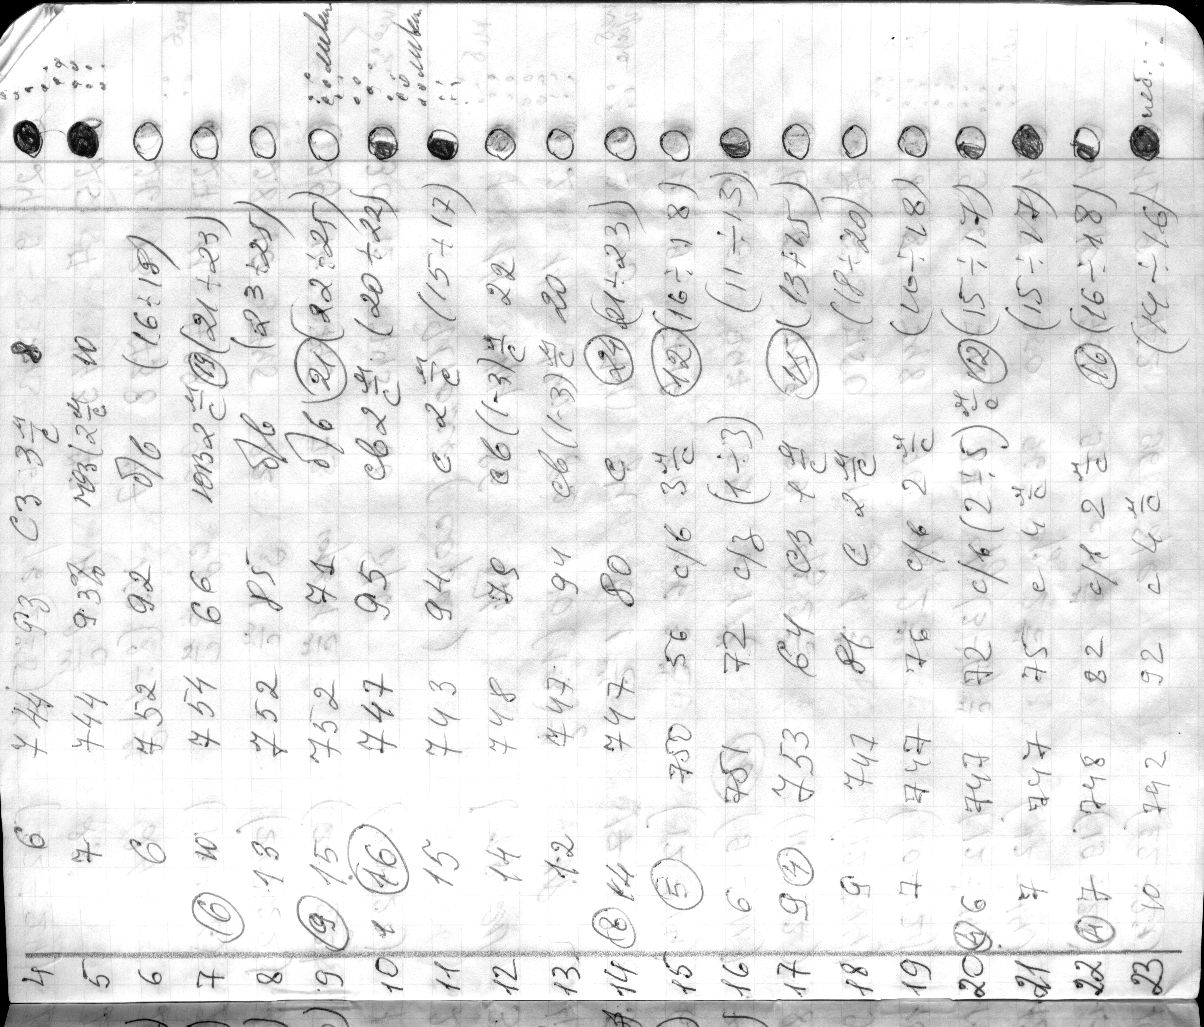 4 6 744 93 СЗ 3 м/с 8
5 7 744 93% 10
6 6 752 92 б/в (16÷18)
7 (6) 10 754 66 юз 2 м/с (19) (21÷23)
8 13 752 85 б/в (23÷25)
9 (9) 15 752 71 б/в (21) (22÷25) ливень
10 (16) 747 95 св 2 м/с (20÷22) ливень
11 15 743 94 с 2 м/с (15÷17)
12 14 748 79 св (1-3) м/с 22
13 12 747 94 св (1-3) м/с 20
14 (8) 14 747 80 с (21÷23)
15 (5) 750 56 с/в 3 м/с (12) (16÷18)
16 6 751 72 с/з (1÷3) (11÷13)
17 9 (7) 753 64 СЗ 1 м/с (15) (13÷15)
18 9 747 81 С 2 м/с (18÷20)
19 7 747 76 с/в 2 м/с (16÷18)
20 (4) 6 747 72 с/в (2÷5) м/с (12) (15÷17)
21 7 747 75 с 4 м/с (15÷17)
22 (4) 7 748 82 с/в 2 м/с (16) (16÷18)
23 10 742 92 с 4 м/с (14÷16)